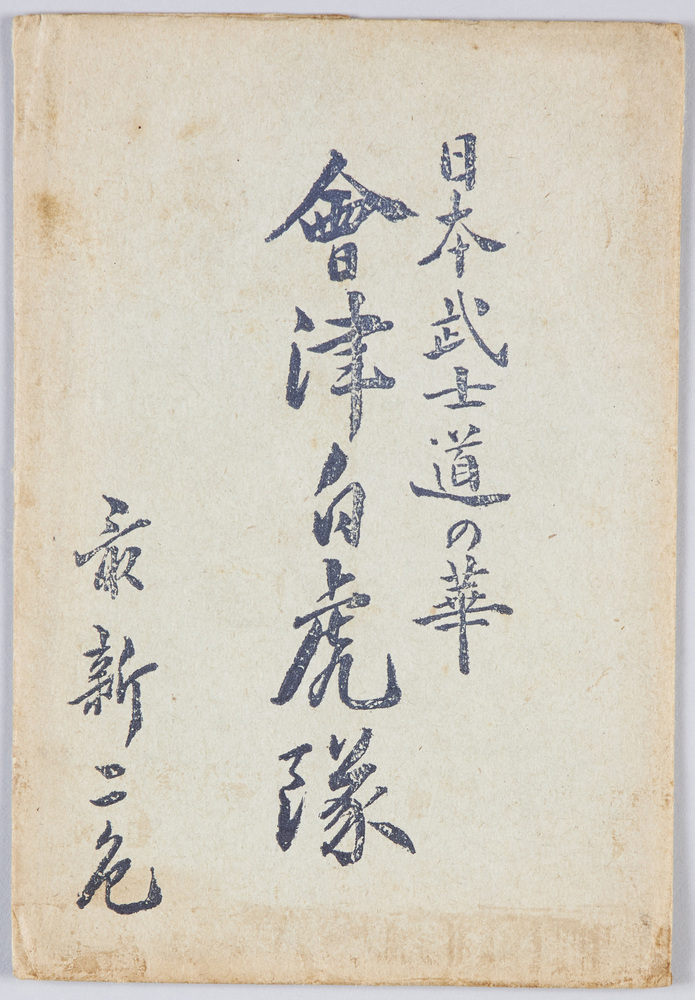 日本武士道の華
會津白虎隊
最新二色